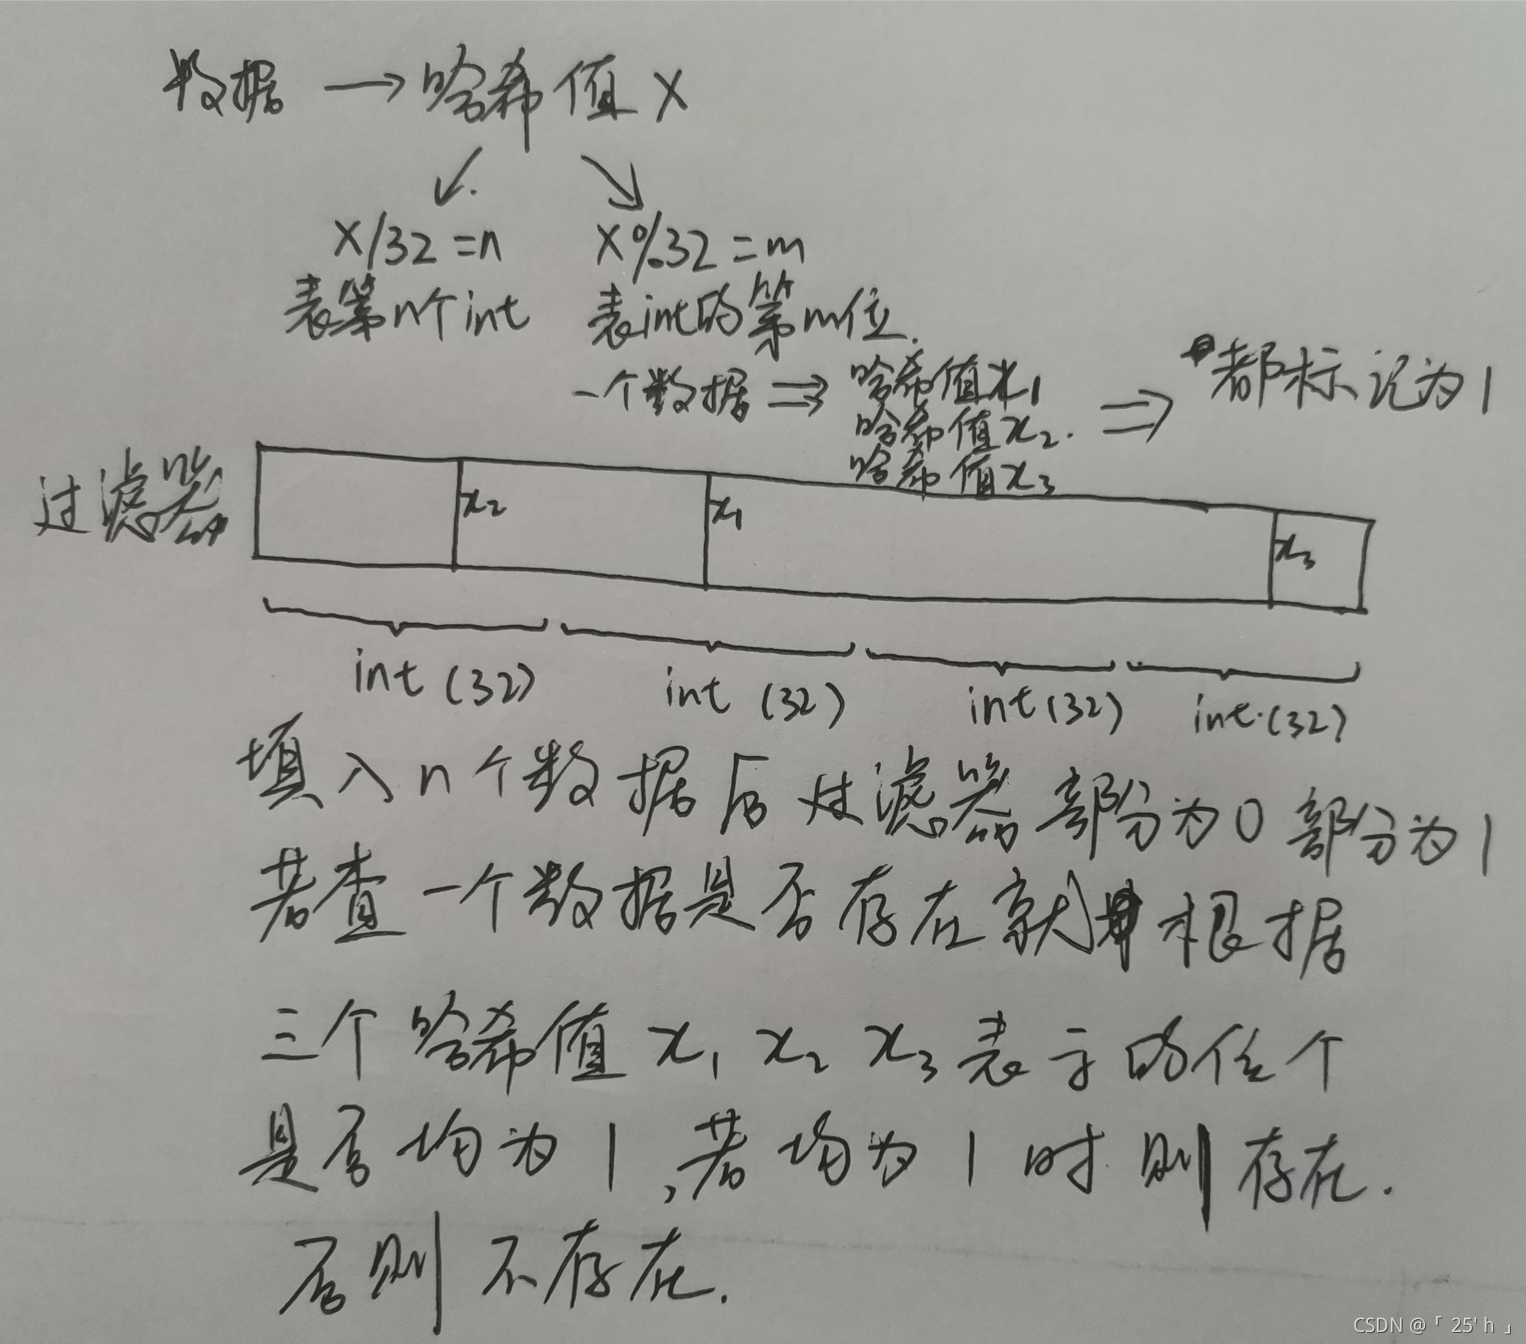 数据 → 哈希值 X
X/32 = n X%32 = m
表第n个int 表int的第m位.
一个数据 ⇒ 哈希值x1 ⇒ 都标记为1
哈希值x2.
哈希值x3
过滤器 x2 x1 x3
int (32) int (32) int (32) int (32)
填入n个数据后过滤器部分为0部分为1
若查一个数据是否存在就 根据
三个哈希值 x1 x2 x3 表示的位个
是否均为1,若均为1时则存在.
否则不存在.
CSDN @「 25' h 」